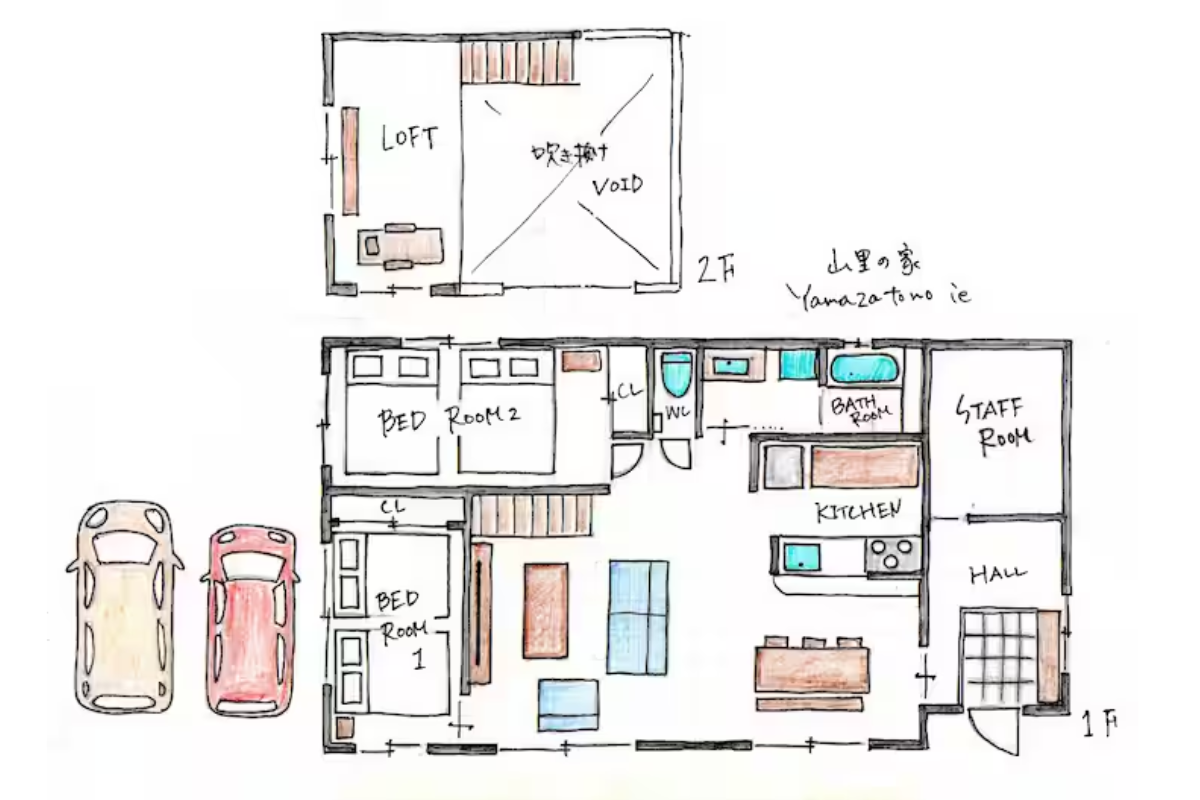 LOFT
吹き抜け
VOID
2F
山里の家
Yamazatono ie
BED ROOM 2
CL
WC
BATH
ROOM
STAFF
ROOM
CL
KITCHEN
HALL
BED
ROOM
1
1F